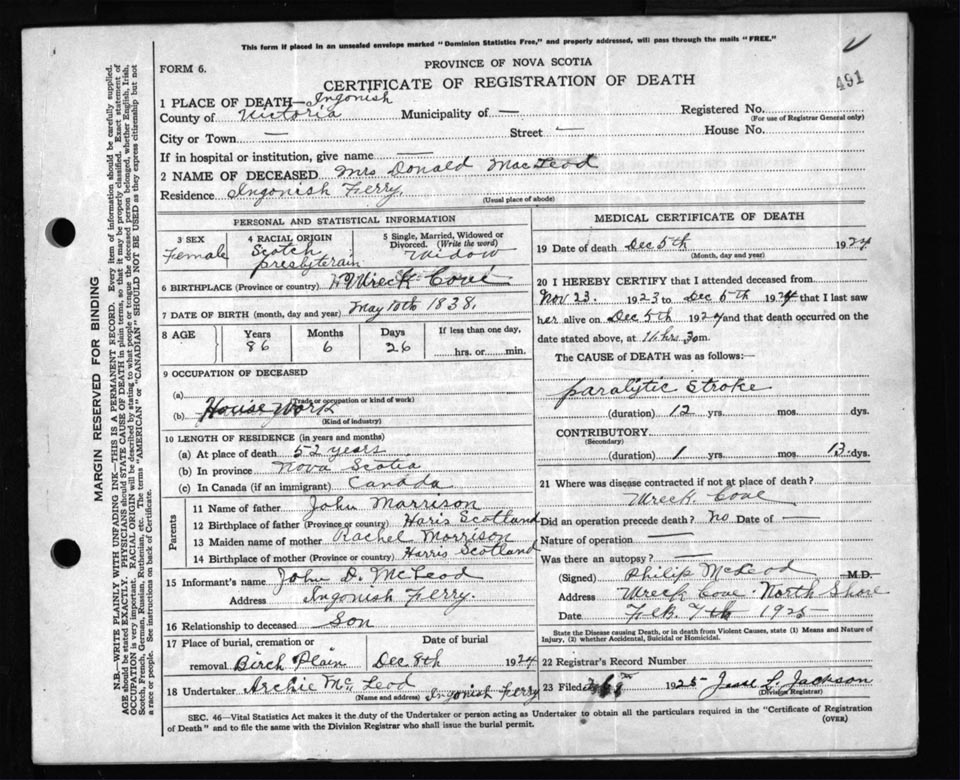 This form if placed in an unsealed envelope marked "Dominion Statistics Free," and properly addressed, will pass through the mails "FREE."
PROVINCE OF NOVA SCOTIA
FORM 6.
CERTIFICATE OF REGISTRATION OF DEATH
491
1 PLACE OF DEATH— Ingonish
County of Victoria Municipality of — Registered No.
(For use of Registrar General only)
City or Town — Street — House No.
If in hospital or institution, give name —
2 NAME OF DECEASED Mrs Donald MacLeod
Residence Ingonish Ferry
(Usual place of abode)
PERSONAL AND STATISTICAL INFORMATION
3 SEX 4 RACIAL ORIGIN 5 Single, Married, Widowed or Divorced. (Write the word)
Female Scotch presbyterain Widow
6 BIRTHPLACE (Province or country) Wreck Cove
7 DATE OF BIRTH (month, day and year) May 10th 1838.
8 AGE Years Months Days If less than one day,
86 6 26 hrs. or min.
9 OCCUPATION OF DECEASED
(a)
(Trade or occupation or kind of work)
(b) House Work
(Kind of industry)
10 LENGTH OF RESIDENCE (in years and months)
(a) At place of death 52 years
(b) In province Nova Scotia
(c) In Canada (if an immigrant) Canada
Parents
11 Name of father John Morrison
12 Birthplace of father (Province or country) Haris Scotland
13 Maiden name of mother Rachel Morrison
14 Birthplace of mother (Province or country) Harris Scotland
15 Informant's name John D. McLeod
Address Ingonish Ferry.
16 Relationship to deceased Son
17 Place of burial, cremation or Date of burial
removal Birch Plain Dec 8th 1924
18 Undertaker Archie McLeod Ingonish Ferry
(Name and address)
MEDICAL CERTIFICATE OF DEATH
19 Date of death Dec 5th 1924
(Month, day and year)
20 I HEREBY CERTIFY that I attended deceased from
Nov 23. 1923 to Dec 5th 1924 that I last saw
her alive on Dec 5th 1924 and that death occurred on the
date stated above, at 11 hrs 30 m.
The CAUSE OF DEATH was as follows:—
paralytic Stroke
(duration) 12 yrs. mos. dys.
CONTRIBUTORY
(Secondary)
(duration) 1 yrs. mos. 13 dys.
21 Where was disease contracted if not at place of death?
Wreck Cove
Did an operation precede death? No Date of —
Nature of operation —
Was there an autopsy? —
(Signed) Philip McLeod M.D.
Address Wreck Cove North Shore
Date Feb. 7th 1925
State the Disease causing Death, or in death from Violent Causes, state (1) Means and Nature of Injury, (2) whether Accidental, Suicidal or Homicidal.
22 Registrar's Record Number
23 Filed 1925 Jesse L. Jackson
(Division Registrar)
SEC. 46—Vital Statistics Act makes it the duty of the Undertaker or person acting as Undertaker to obtain all the particulars required in the "Certificate of Registration
of Death" and to file the same with the Division Registrar who shall issue the burial permit.
(OVER)
MARGIN RESERVED FOR BINDING
N.B.—WRITE PLAINLY WITH UNFADING INK—THIS IS A PERMANENT RECORD. Every item of information should be carefully supplied.
AGE should be stated EXACTLY. PHYSICIANS should STATE CAUSE OF DEATH in plain terms, so that it may be properly classified. Exact statement of
OCCUPATION is very important. RACIAL ORIGIN will be described by stating to what people or tongue the deceased person belonged, whether English, Irish,
Scotch, French, German, Russian, Ruthenian, etc. The terms "AMERICAN" or "CANADIAN" SHOULD NOT BE USED as they express citizenship but not
a race or people. See instructions on back of Certificate.